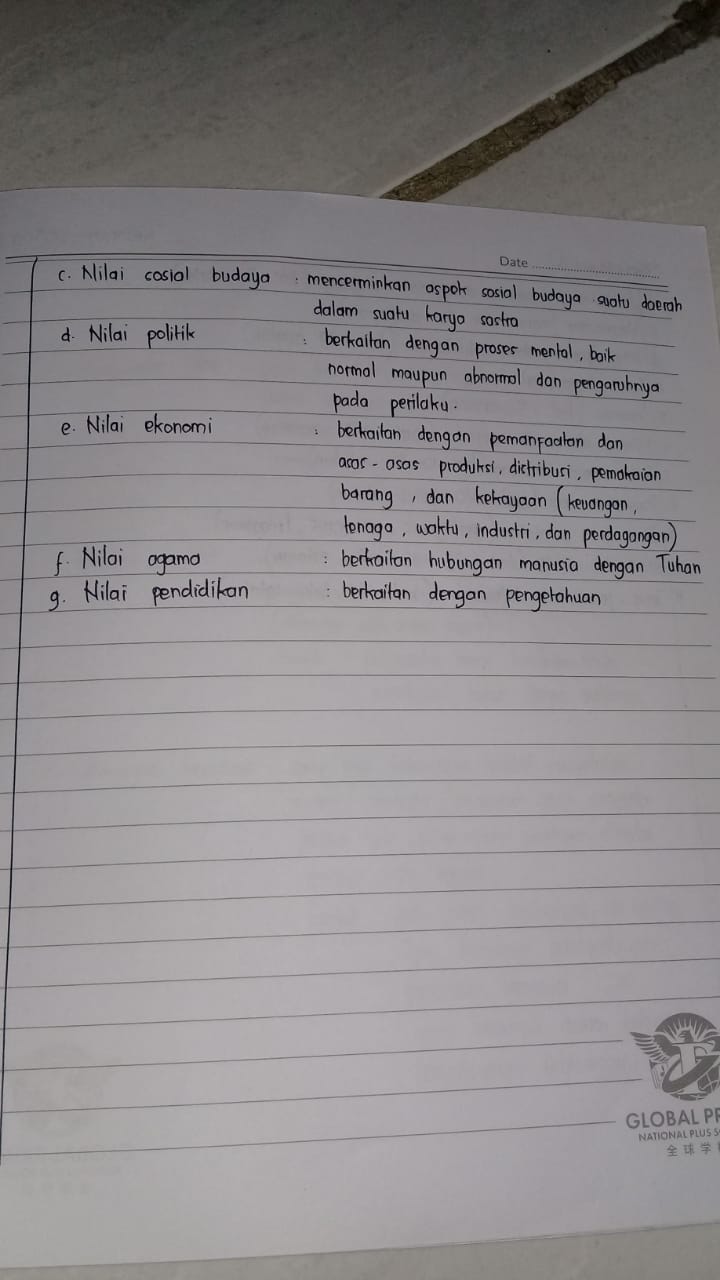 Date
c. Nilai sosial budaya : mencerminkan aspek sosial budaya suatu daerah
dalam suatu karya sastra
d. Nilai politik : berkaitan dengan proses mental, baik
normal maupun abnormal dan pengaruhnya
pada perilaku.
e. Nilai ekonomi : berkaitan dengan pemanfaatan dan
asas-asas produksi, distribusi, pemakaian
barang, dan kekayaan (keuangan,
tenaga, waktu, industri, dan perdagangan)
f. Nilai agama : berkaitan hubungan manusia dengan Tuhan
g. Nilai pendidikan : berkaitan dengan pengetahuan
GLOBAL PR
NATIONAL PLUS S
全球学